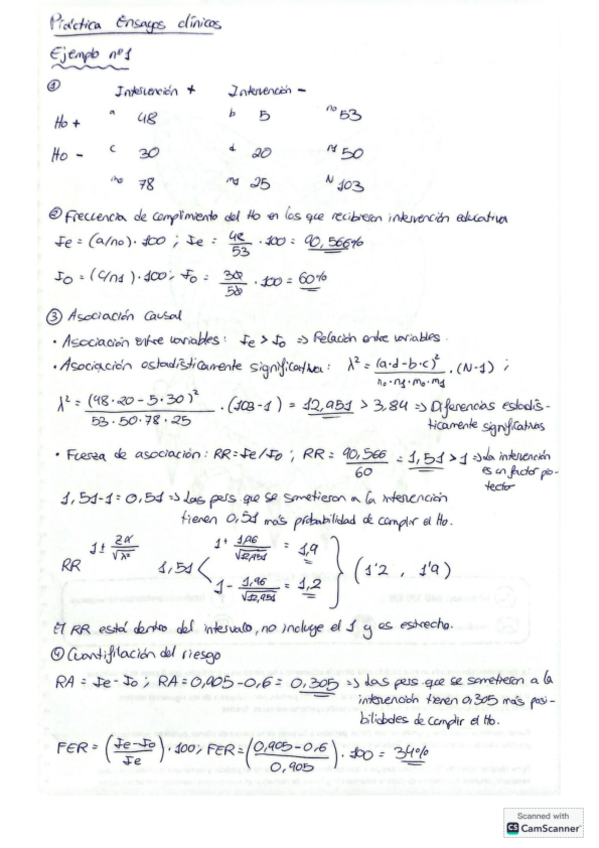 Práctica Ensayos clínicos
Ejemplo nº1
① Intervención + Intervención -
Ho + a 48 b 5 no 53
Ho - c 30 d 20 n1 50
mo 78 m1 25 N 103
② Frecuencia de cumplimiento del Ho en los que recibiesen intervención educativa
Ie = (a/no)·100 ; Ie = 48/53 · 100 = 90,566%
Io = (c/n1)·100 ; Io = 30/50 · 100 = 60%
③ Asociación causal
• Asociación entre variables: Ie > Io => Relación entre variables.
• Asociación estadísticamente significativa: λ² = (a·d-b·c)²/no·n1·mo·m1 · (N-1) ;
λ² = (48·20-5·30)²/53·50·78·25 · (103-1) = 12,951 > 3,84 => Diferencias estadís-
ticamente significativas
• Fuerza de asociación: RR = Ie/Io ; RR = 90,566/60 = 1,51 > 1 => La intervención
es un factor pro-
tector
1,51-1 = 0,51 => Las pers que se sometieron a la intervención
tienen 0,51 más probabilidad de cumplir el Ho.
RR 1± Zα/√λ² 1,51 < 1+ 1,96/√12,951 = 1,9
1- 1,96/√12,951 = 1,2 } (1'2 , 1'9)
El RR está dentro del intervalo, no incluye el 1 y es estrecho.
④ Cuantifilación del riesgo
RA = Ie-Io ; RA = 0,905-0,6 = 0,305 => Las pers que se sometieron a la
intervención tienen 0,305 más posi-
bilidades de cumplir el Ho.
FER = (Ie-Io/Ie)·100 ; FER = (0,905-0,6/0,905)·100 = 34%
Scanned with
CS CamScanner